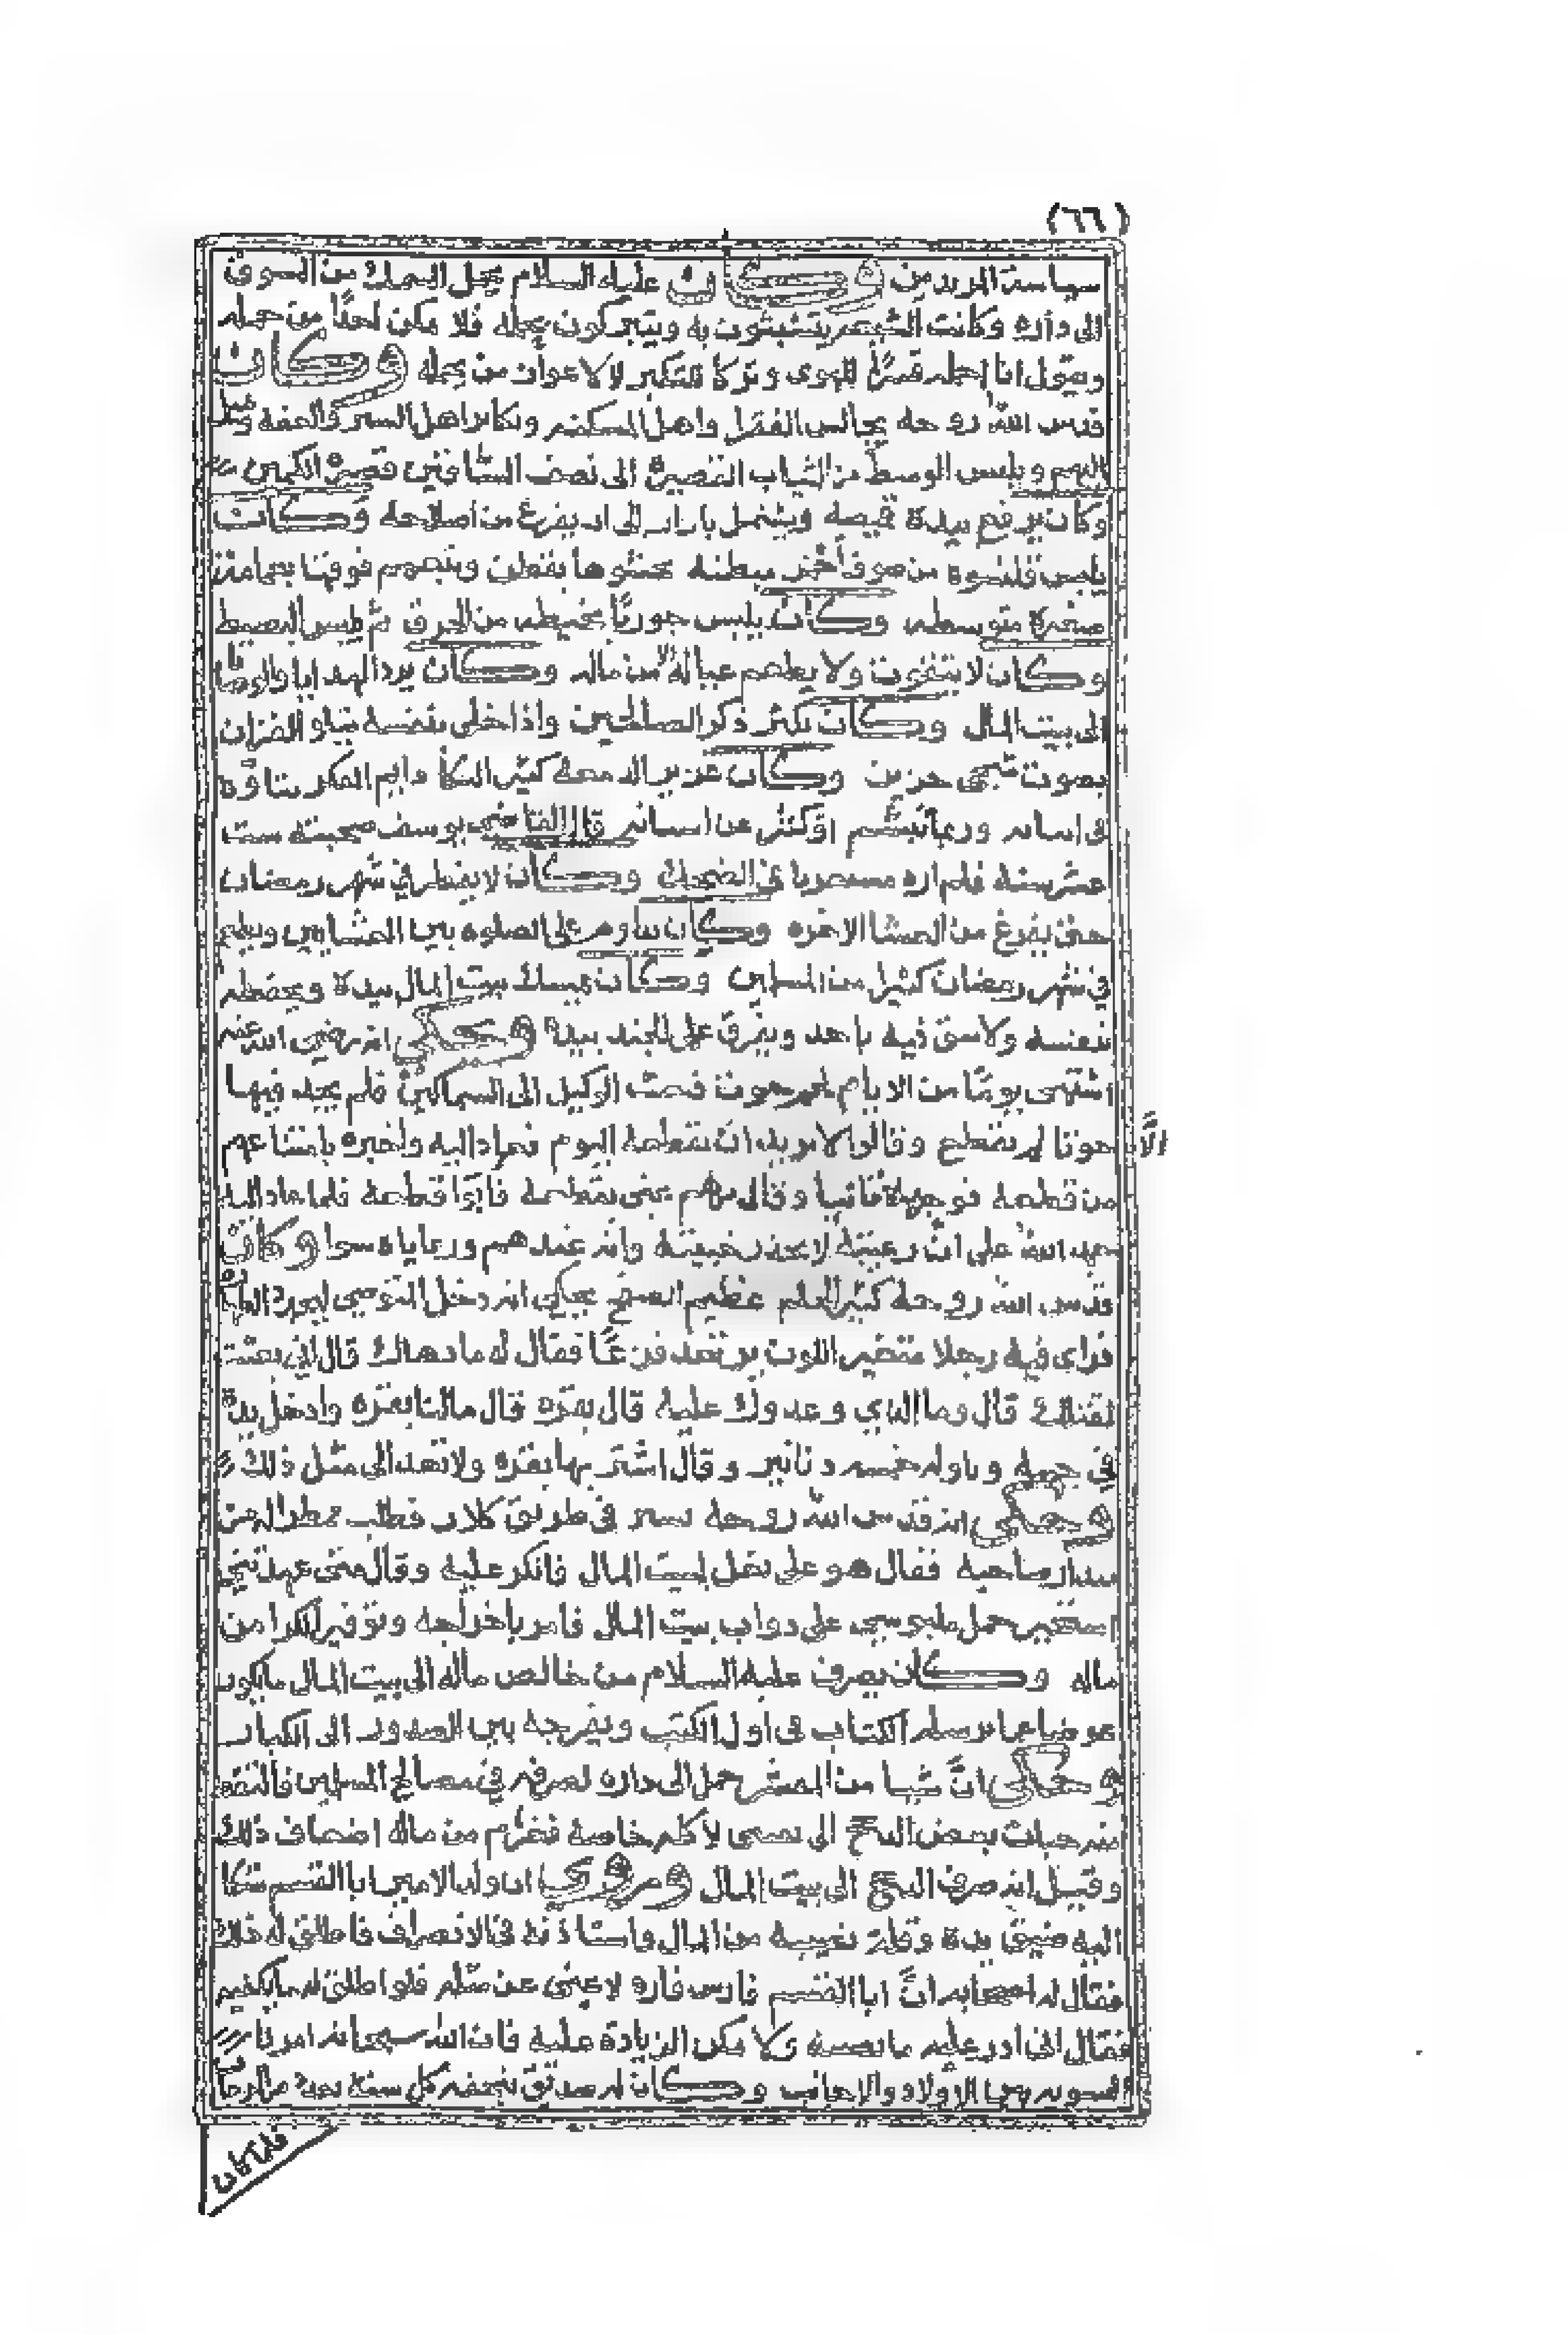 (٦٦)
سياسة المريدين وكان عليه السلام يحمل السمك من السوق
الى داره وكانت الشيعه يتشبثون به ويتبركون بحمله فلا يمكن احدًا من حمله
ويقول انا احمله قسرًا للهوى وتركًا للتكبر لا لاعواز من يحمله وكان
قدس الله روحه يجالس الفقرا واهل المسكنه ويكاثر اهل الستر والعفه
ويلبس الوسط من الثياب القصيرة الى نصف الساقين قصيرة الكمين
وكان يرقع بيده قميصه ويشتمل بازار الى ان يفرغ من اصلاحه وكان
يلبس قلنسوه من صوف احمر مبطنه محشوها بقطن ويتعمم فوقها بعمامة
صغيرة متوسطه وكان يلبس جوربًا يخيطه من الخرق ثم يلبس
وكان لا يتقوت ولا يطعم عياله الا من ماله وكان يرد الهدايا والوصايا
الى بيت المال وكان يكثر ذكر الصالحين واذا خلى بنفسه يتلو القران
بصوت شجي حزين وكان غزير الدمعة كثير البكا دايم الفكر يتاوه
في اسائه وربما تبسم او كشر عن اسنانه قال القاضي يوسف صحبته ست
عشر سنة فلم اره مستغربا في الضحك وكان لا يفطر في شهر رمضان
حتى يفرغ من العشا الاخره وكان يداوم على الصلوه بين العشاءين
في شهر رمضان كثيرا من المسلمين وكان يمسك بيت المال بيده ويحفظه
بنفسه ولا يثق فيه باحد ويفرق على الجند بيده وحكي انه رضي الله عنه
اشتهى يومًا من الايام لحم حوت فبعث الوكيل الى السماكين فلم يجد فيها
الا حوتا لم يقطع وقالوا لا نريد ان نقطعه اليوم فعاد اليه واخبره بامتناعهم
من قطعه فوجهه ثانيا وقال مرهم عني بقطعه فابوا قطعه فلما عاد اليه
حمد الله على ان رعيته لا تحذر جنبته وانه عندهم ورعاياه سوا وكان
قدس الله روحه كثير الحلم عظيم الصفح حكي انه دخل المتوضى
فراى فيه رجلا متغير اللون يرتعد فزعًا فقال له ما دهاك قال اني بعثت
لقتلك قال وما الذي وعدوك عليه قال بقره قال ما لنا بقره وادخل يده
في جيبه وناوله خمسه دنانير وقال اشتر بها بقره ولا تعد الى مثل ذلك
وحكي انه قدس الله روحه يسير في طريق كلار
صاحبه فقال هو على بغل لبيت المال فانكر عليه وقال متى عهدتني
حمل ملبوسي على دواب بيت المال فامر باخراجه وتوفير الكرا من
ماله وكان يصرف عليه السلام من خالص ماله الى بيت المال ما يكون
عوضا عما يرسله الكتاب في اول الكتب ويفرجه بين السطور الى الكبار
وحكي ان شيا من العشر حمل الى داره ليصرفه في مصالح المسلمين
منه حبات بعض الى لاكله خاصة فغرم من ماله اضعاف ذلك
وقيل انه صرف الى بيت المال وروي ان ابا القسم شكا
اليه ضيق يده وقلة نصيبه من المال واستاذنه في الانصراف فاطلق له ذلك
فقال له اصحابه ان ابا القسم فارس فاره لا غنى عن مثله فلو اطلق له ما يكفيه
فقال اني ادر عليه ما نصيبه ولا يمكن الزيادة عليه فان الله سبحانه امرنا
بالتسويه بين الاولاد والاجانب وكان له صديق يتحفه كل سنة
فلما كان